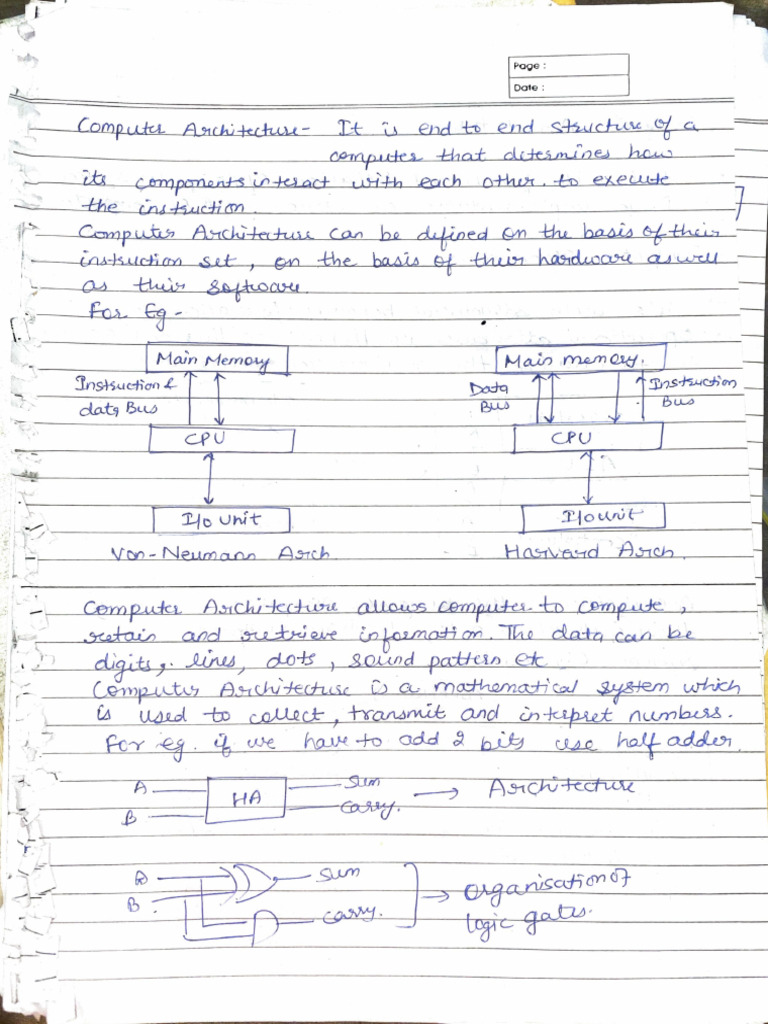 Page :
Date :
Computer Architecture - It is end to end structure of a
computer that determines how
its components interact with each other. to execute
the instruction.
Computer Architecture can be defined on the basis of their
instruction set, on the basis of their hardware as well
as their software.
For Eg -
Main Memory
Instruction &
data Bus
CPU
I/o unit
Von-Neumann Arch.
Main memory.
Data
Bus
Instruction
Bus
CPU
I/o unit
Harvard Arch.
Computer Architecture allows computer to compute,
retain and retrieve information. The data can be
digits, lines, dots, sound pattern etc
Computer Architecture is a mathematical system which
is used to collect, transmit and interpret numbers.
For eg. if we have to add 2 bits use half adder.
A
B
HA
Sum
Carry.
→ Architecture
A
B.
Sum
Carry.
→ Organisation of
logic gates.